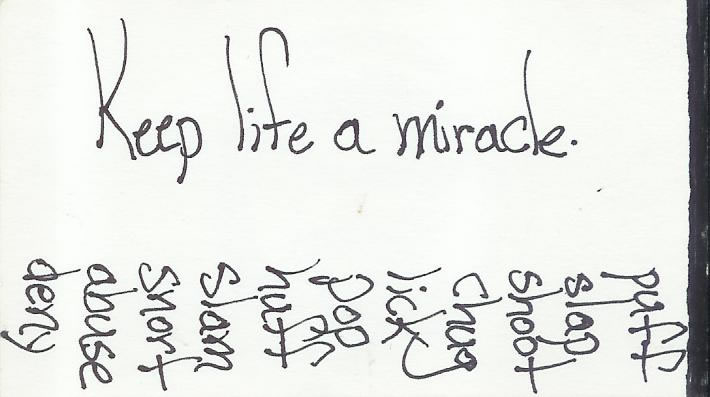 Keep life a miracle.
puff
slap
shoot
chug
lick
pop
huff
slam
snort
abuse
deny